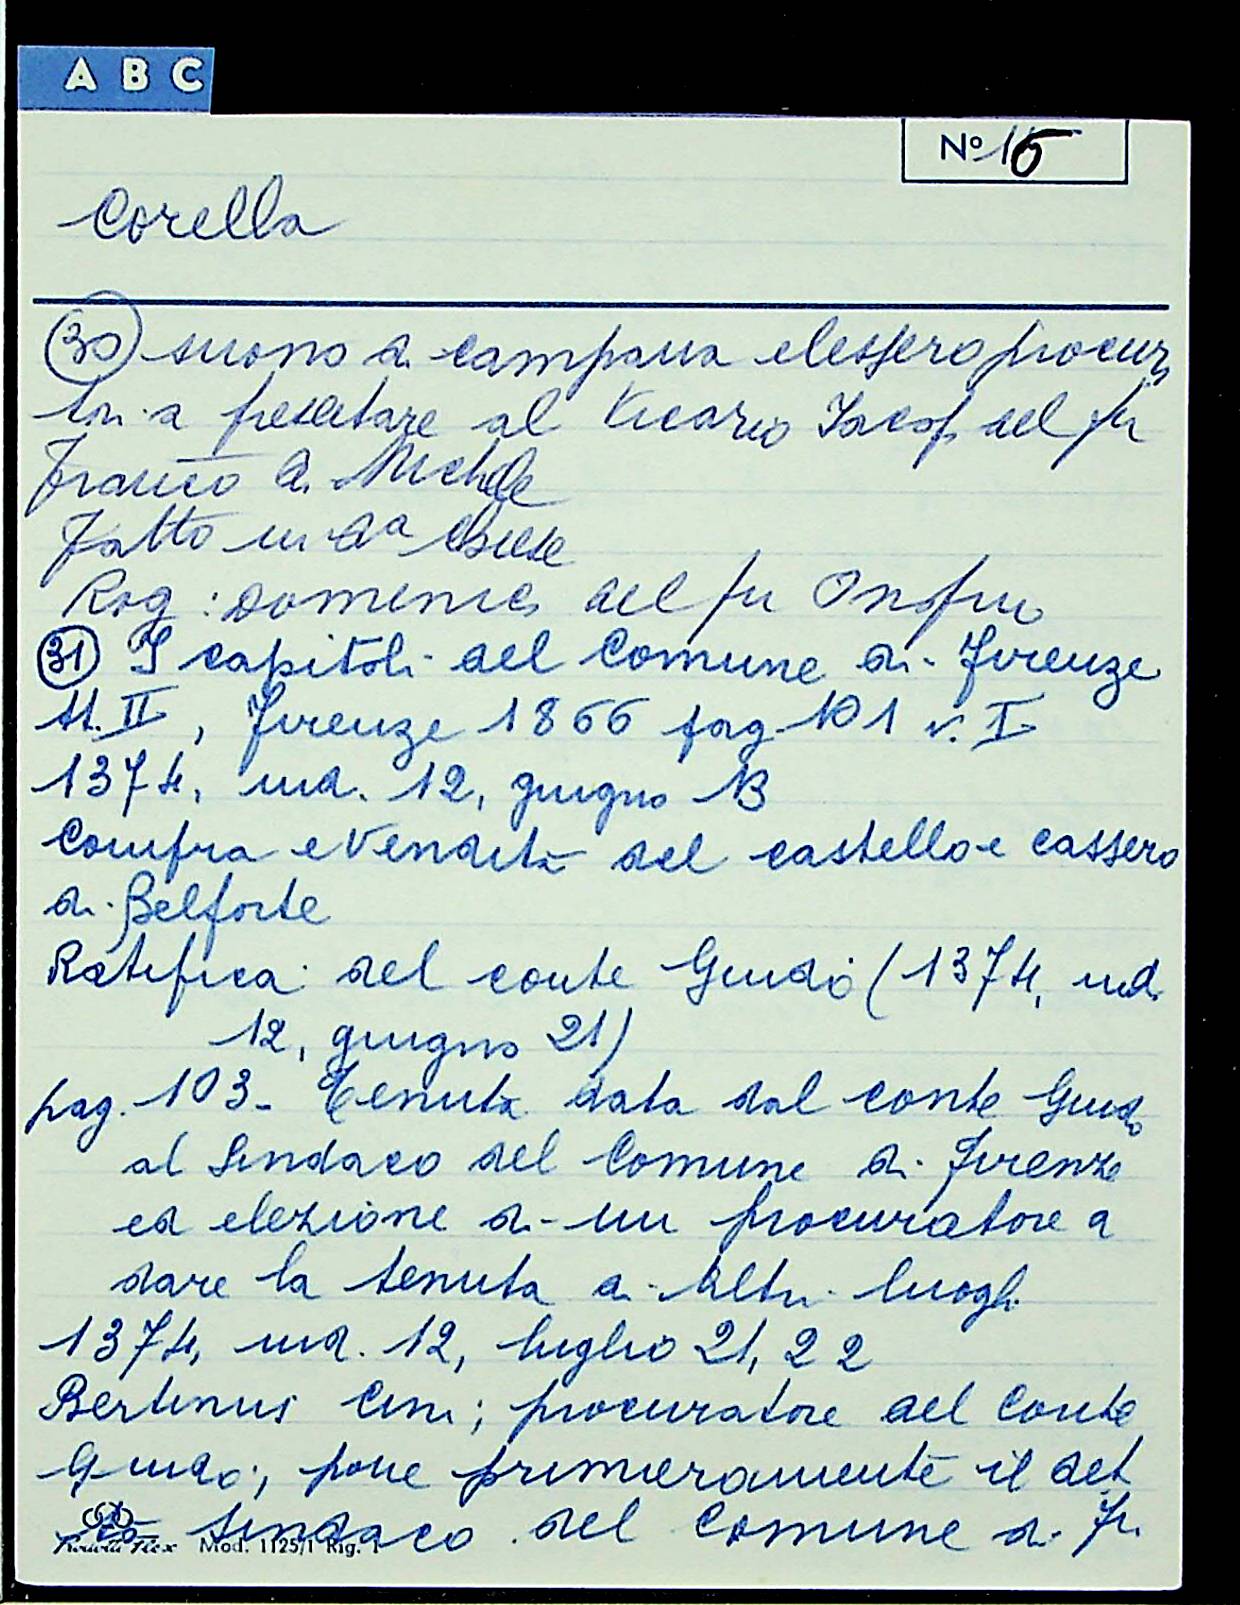 A B C
Nº 16
Corella
30 suono di campana elessero procura
tori a presentare al Vicario Iacop. del fu
Franco di Michele
Fatto in da Chiesa
Rog: Domenico del fu Onofrio
31 I capitoli del Comune di Firenze
tt. II, Firenze 1866 pag. 101 v. I
1374, ind. 12, giugno 13
Compra e Vendita del castello e cassero
di Belforte
Ratifica del conte Guido (1374, ind.
12, giugno 21)
pag. 103 - Tenuta data dal conte Guido
al Sindaco del Comune di Firenze
ed elezione di un procuratore a
dare la tenuta di altri luoghi
1374, ind. 12, luglio 21, 22
Bertinus Cini; procuratore del Conte
Guido; pone primieramente il det
to Sindaco del Comune di Fi
Mod. 1125/1 Rig. 1